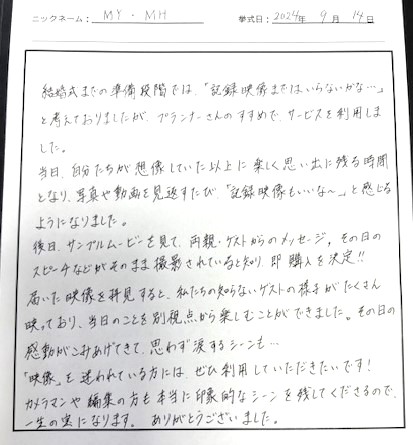 ニックネーム： MY・MH 挙式日：2024年 9月 14日
結婚式までの準備段階では、「記録映像まではいらないかな…」
と考えておりましたが、プランナーさんのすすめで、サービスを利用しま
した。
当日、自分たちが想像していた以上に楽しく思い出に残る時間
となり、写真や動画を見返すたび、「記録映像もいいな〜」と感じる
ようになりました。
後日、サンプルムービーを見て、両親・ゲストからのメッセージ、その日の
スピーチなどがそのまま撮影されていると知り、即購入を決定!!
届いた映像を拝見すると、私たちの知らないゲストの様子がたくさん
映っており、当日のことを別視点から楽しむことができました。その日の
感動がこみあげてきて、思わず涙するシーンも…
「映像」を迷われている方には、ぜひ利用していただきたいです!
カメラマンや編集の方も本当に印象的なシーンを残してくださるので、
一生の宝になります。 ありがとうございました。